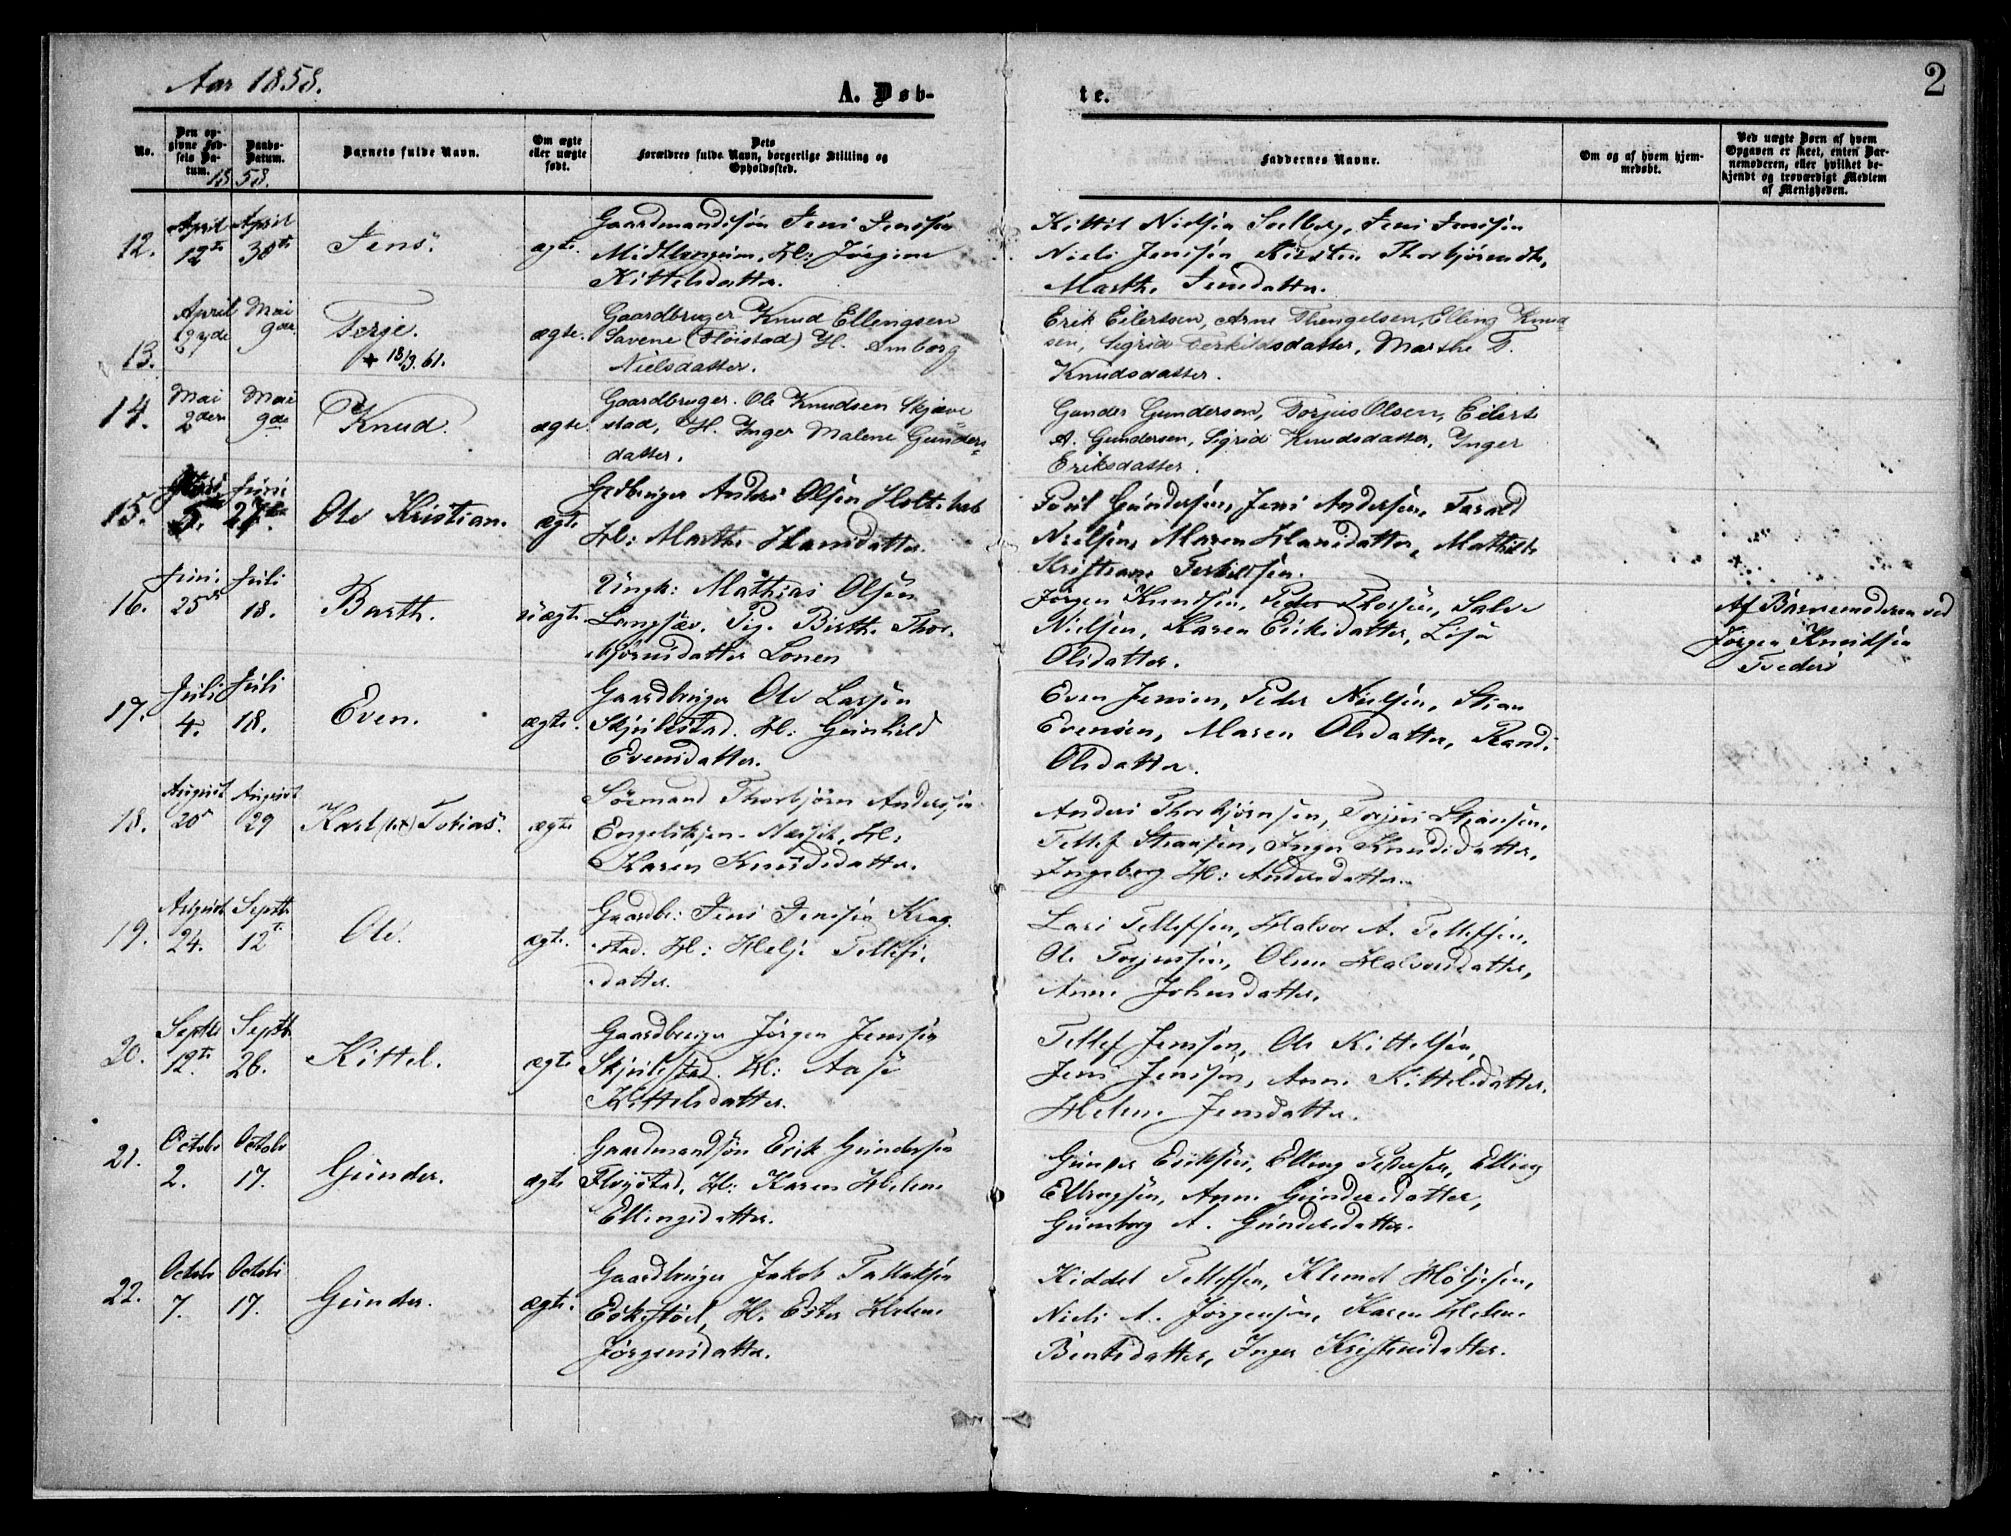 Aar 1858.
A. Døb-
te.
2
No.
Den op-
givne Fød-
sels Da-
tum.
Daabs-
Datum.
1858.
Barnets fulde Navn.
Om ægte
eller uægte
født.
Dets
Forældres fulde Navn, borgerlige Stilling og
Opholdssted.
Faddernes Navne.
Om og af hvem hjem-
medøbt.
Ved uægte Børn af hvem
Opgaven er skeet, enten Bar-
nemoderen, eller hvilket be-
kjendt og troværdigt Medlem
af Menigheden.
12.
April
12te
April
30te
Jens.
ægte.
Gaardmandssøn Jens Jensen
H: Jørgine
Kittelsdatter.
Kittil Nielsen Solberg, Jens Jensen
Niels Jensen Kirsten Thorbjørnsdtr,
Marthe Jensdatter.
13.
April
Mai
9de
Terje.
+ 18/3. 61.
ægte.
Gaardbruger Knud Ellengsen
Savene (Fløistad) H. Amborg
Nielsdatter.
Erik Eilertsen, Arne Thengelsen, Elling Knud
sen, Sigrid Terkildsdatter, Marthe T.
Knudsdatter.
14.
Mai
2den
Mai
9de
Knud.
ægte
Gaardbruger. Ole Knudsen Skjæve
stad, H. Inger Malene Gunders-
datter.
Gunder Gundersen, Torjus Olsen, Eilert
A. Gundersen, Sigrid Knudsdatter, Inger
Eriksdatter.
15.
5.
Juni
27de
Ole Kristian.
ægte
Gdbruger Anders Olsen Holt
H: Marthe Hansdatter.
Gundersen, Jens Andersen, Tarald
Nielsen, Maren Hansdatter, Mathilde
Kristiane Terkildsen.
16.
Juni
25de
Juli
18.
Barth.
uægte
Ungk: Mathias Olsen
Langsæv. Pig. Birthe Thor-
bjørnsdatter Lonen
Jørgen Knudsen, Peder Thorsen, Salve
Nielsen, Karen Eriksdatter, Lisa
Olsdatter.
Af Barnemoderen ved
Jørgen Knudsen
Tvede
17.
Juli
4.
Juli
18.
Even.
ægte.
Gaardbruger Ole Larsen
Skjulestad. H: Gunhild
Evensdatter.
Even Jensen, Peder Nielsen, Stian
Evensen, Maren Olsdatter, Randi
Olsdatter.
18.
August
20de
August
29
Karl Tobias.
ægte
Sømand Thorbjørn Andersen
Engeliksen. Næsvik, H:
Karen Knudsdatter.
Anders Thorbjørnsen, Torjus Stiansen,
Tellef Stiansen, Inger Knudsdatter,
Ingeborg H: Andersdatter.
19.
August
24.
Septbr
12te
Ole.
ægte.
Gaardbr: Jens Jensen Krag-
stad. H: Helje Tellefs-
datter.
Lars Tellefsen, Halvor A. Tellefsen,
Ole Torjussen, Olene Halvorsdatter,
Anne Johnsdatter.
20.
Septbr
12te
Septbr
26.
Kittel.
ægte
Gaardbruger Jørgen Jensen
Skjulestad. H: Aase
Kittelsdatter.
Tellef Jensen, Ole Kittelsen,
Jens Jensen, Anne Kittelsdatter,
Helene Jensdatter.
21.
Octobr
2.
Octobr
17.
Gunder.
ægte
Gaardmandssøn Erik Gundersen
Fløystad, H: Karen Helene
Ellingsdatter.
Gunder Eriksen, Elling Pedersen, Elling
Ellingsen, Anne Gundersdatter,
Gunborg A. Gundersdatter.
22.
Octobr
7.
Octobr
17.
Gunder.
ægte.
Gaardbruger Jakob Tallaksen
Eskestøl, H. Ester Helene
Jørgensdatter.
Kiddel Tellefsen, Klemet Høljesen,
Niels A. Jørgensen, Karen Helene
Bentsdatter, Inger Kristensdatter.